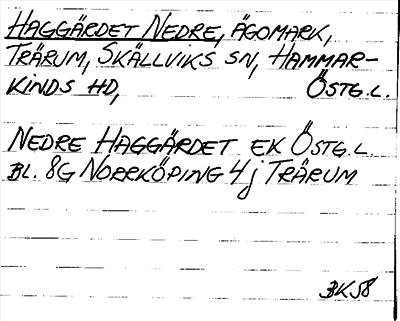 HAGGÄRDET NEDRE, ÄGOMARK,
TRÄRUM, SKÄLLVIKS SN, HAMMAR-
KINDS HD, ÖSTG.L.
NEDRE HAGGÄRDET EK ÖSTG.L
BL. 8G NORRKÖPING 4j TRÄRUM
BK58